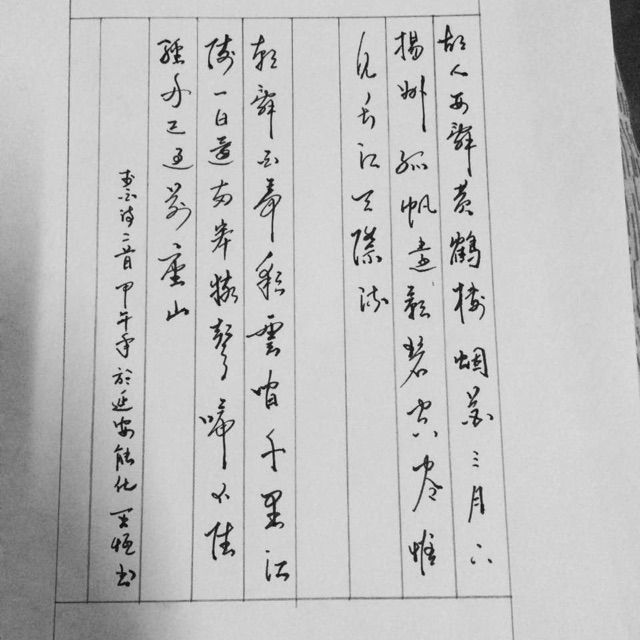 故人西辭黄鶴楼烟花三月下
揚州孤帆遠影碧空尽惟
見長江天際流
朝辭白帝彩雲间千里江
陵一日還两岸猿聲啼不住
轻舟已过萬重山
李白诗二首甲午年於延安能化王恒书